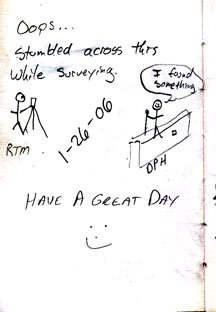 Oops...
Stumbled across this
while surveying.
I found
something
1-26-06
RTM
DPH
HAVE A GREAT DAY